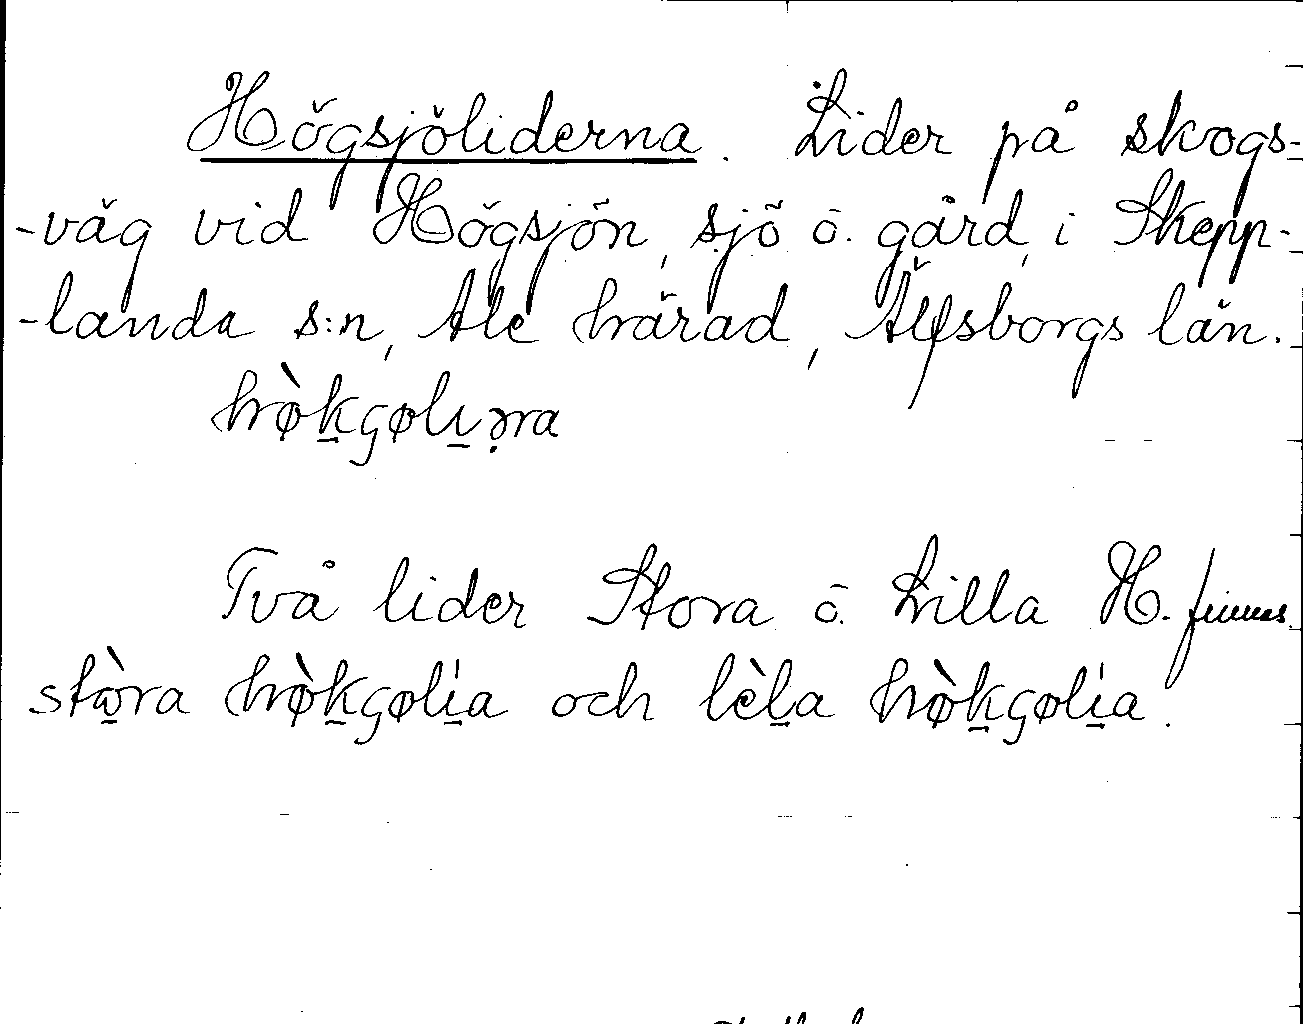 Högsjöliderna. Lider på skogs-
-väg vid Högsjön, sjö o. gård, i Skepp-
-landa s:n, Ale härad, Älfsborgs län.
hø̀k̲çøli̲ə̣ra
Två lider Stora o. Lilla H. finnas.
stɷ̀ra hø̀k̲çøli̲a och lèl̲a hø̀k̲çøli̲a.